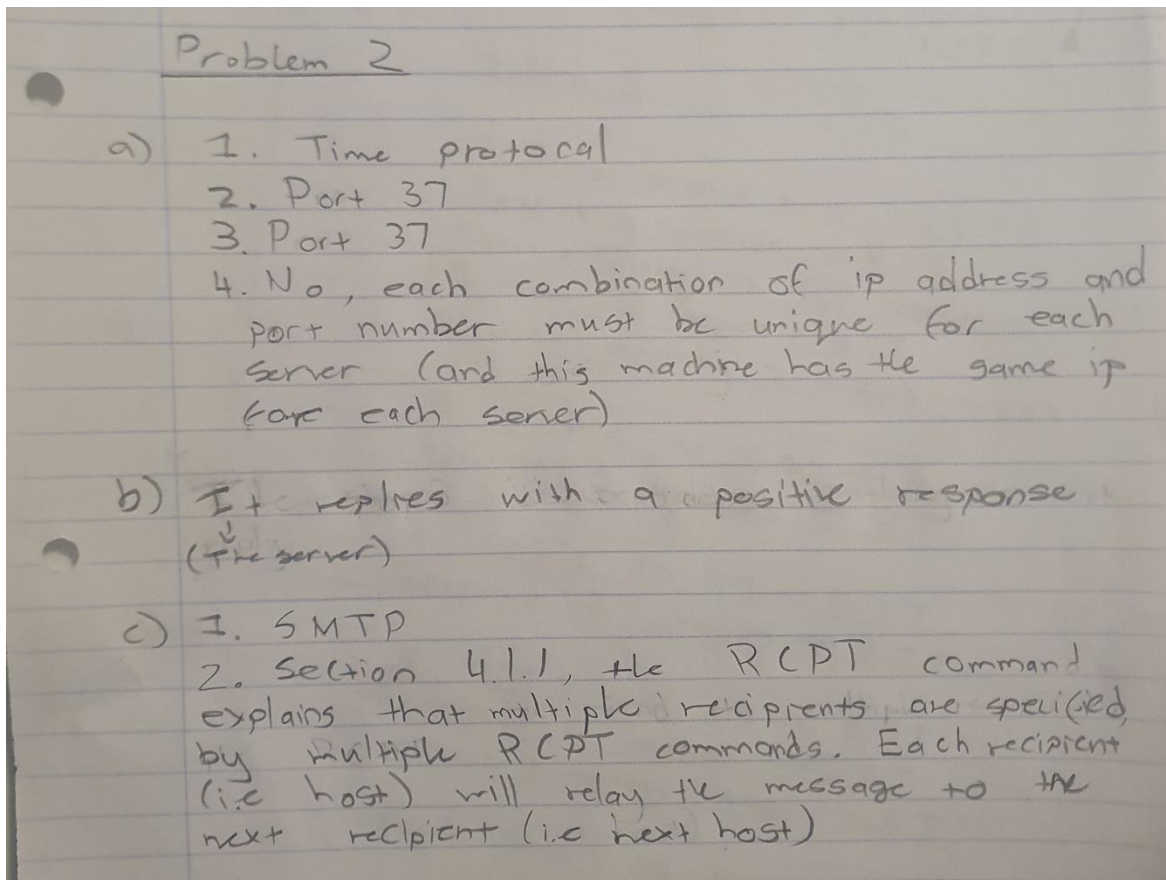 Problem 2
a) 1. Time protocal
2. Port 37
3. Port 37
4. No, each combination of ip address and
port number must be unique for each
server (and this machine has the same ip
fore each server)
b) It replies with a positive response
(The server)
c) 1. SMTP
2. Section 4.1.1, the RCPT command
explains that multiple recipients are specified
by multiple RCPT commands. Each recipient
(i.e host) will relay the message to the
next recipient (i.e next host)